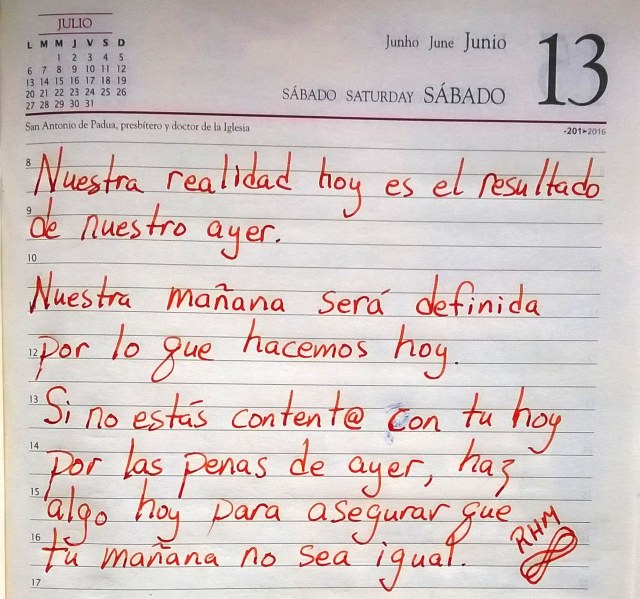 JULIO
L M M J V S D
1 2 3 4 5
6 7 8 9 10 11 12
13 14 15 16 17 18 19
20 21 22 23 24 25 26
27 28 29 30 31
Junho June Junio
13
SÁBADO SATURDAY SÁBADO
San Antonio de Padua, presbítero y doctor de la Iglesia
-201▸2016
8 Nuestra realidad hoy es el resultado
9 de nuestro ayer.
10
Nuestra mañana será definida
12 por lo que hacemos hoy.
13 Si no estás content@ con tu hoy
14 por las penas de ayer, haz
15 algo hoy para asegurar que
16 tu mañana no sea igual.
RHM
17